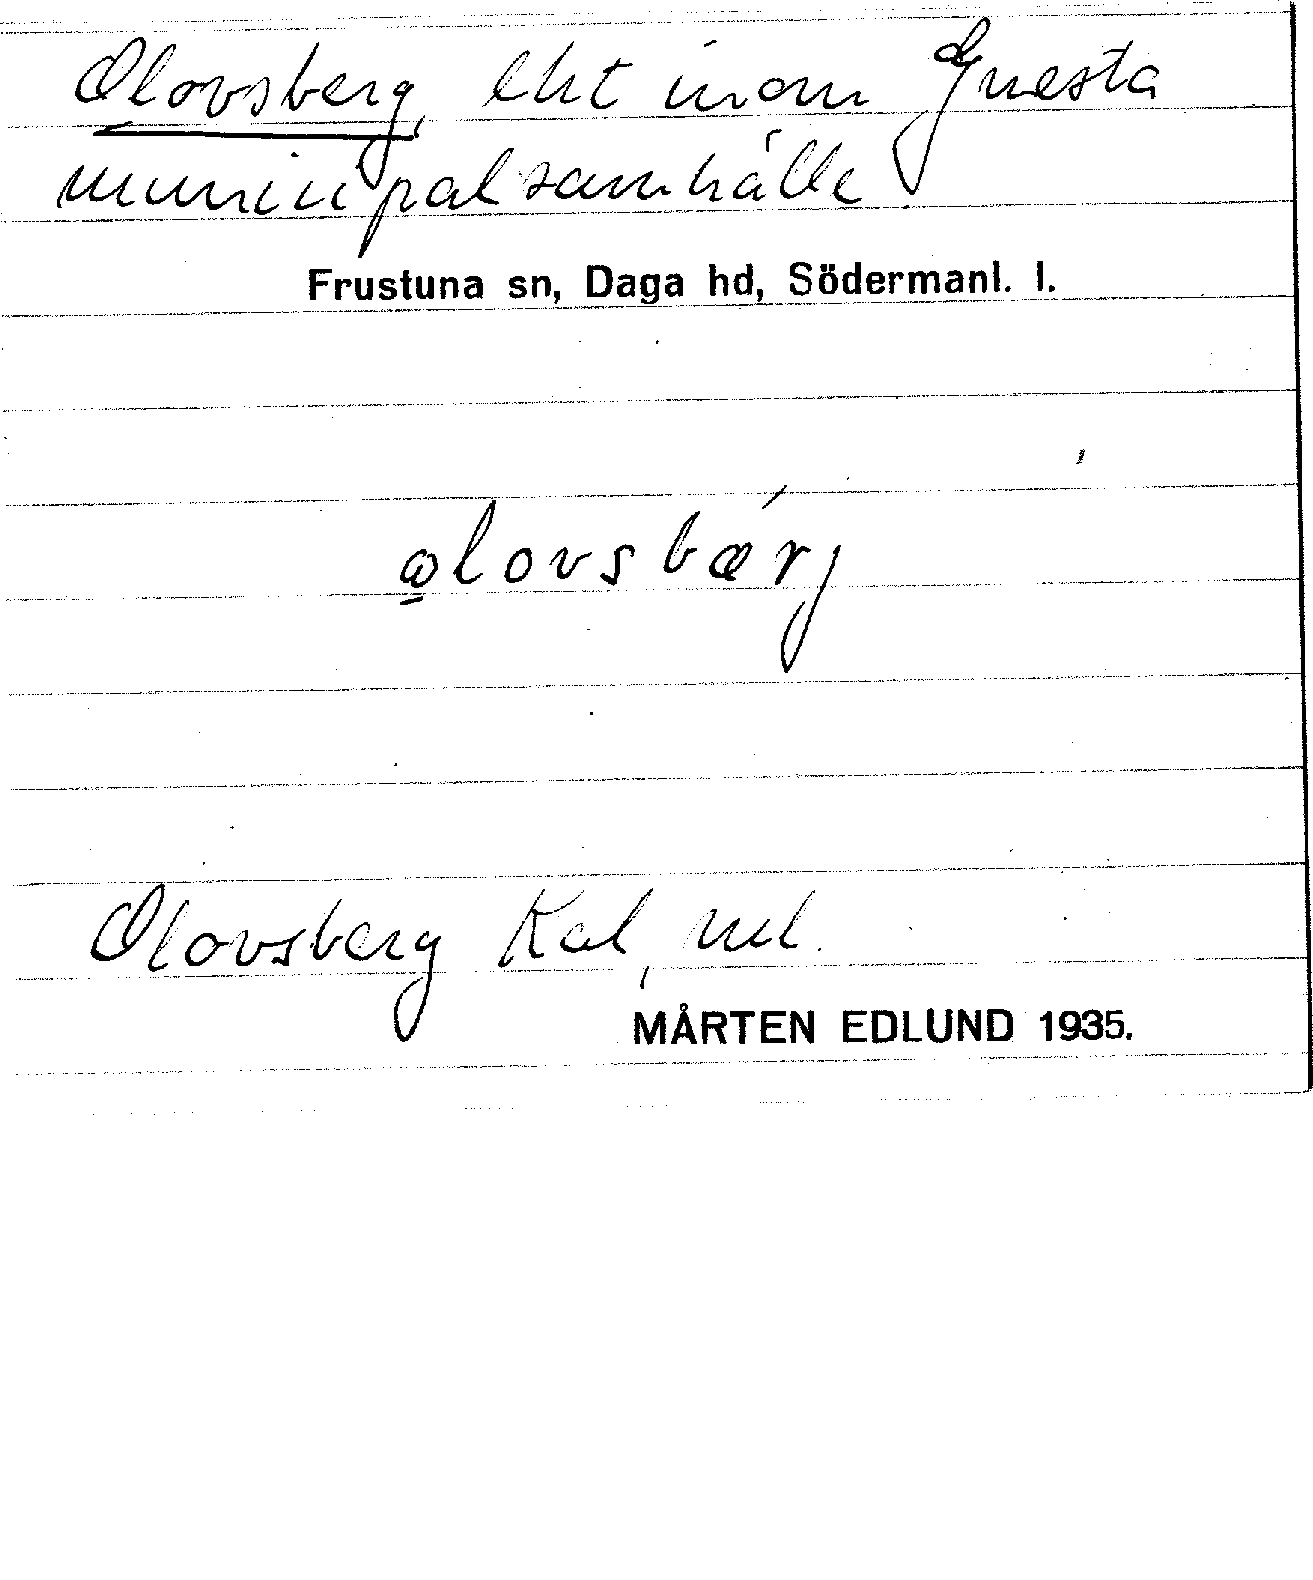 Olovsberg, lht inom Gnesta
municipalsamhälle
Frustuna sn, Daga hd, Södermanl. l.
Olovsberg Kal,
MÅRTEN EDLUND 1935.